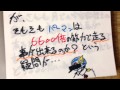 が、
そもそもパーマンは
6600倍の筋力で走る
事が出来るのか？という
疑問が…